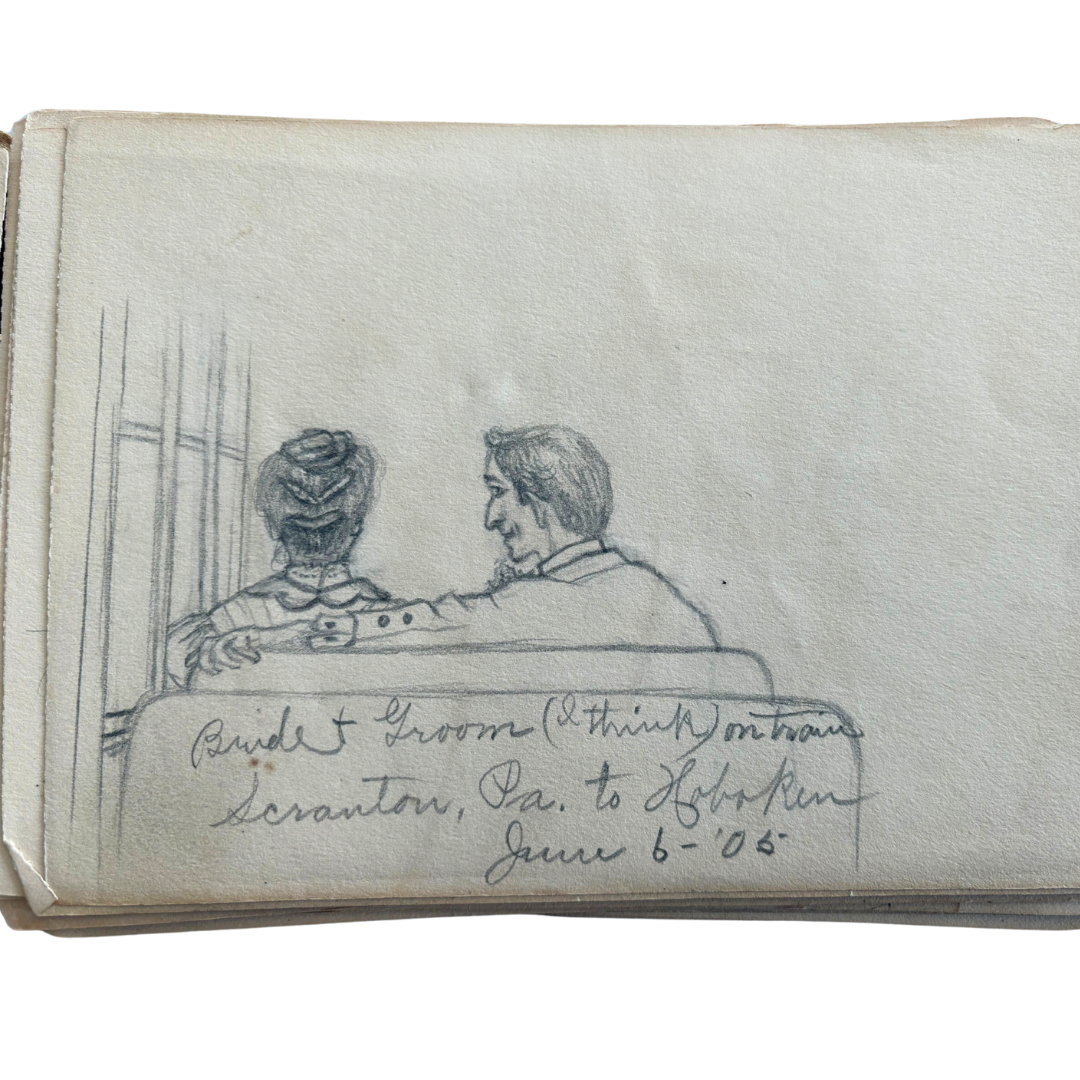 Bride + Groom (I think) on train
Scranton, Pa. to Hoboken
June 6-'05